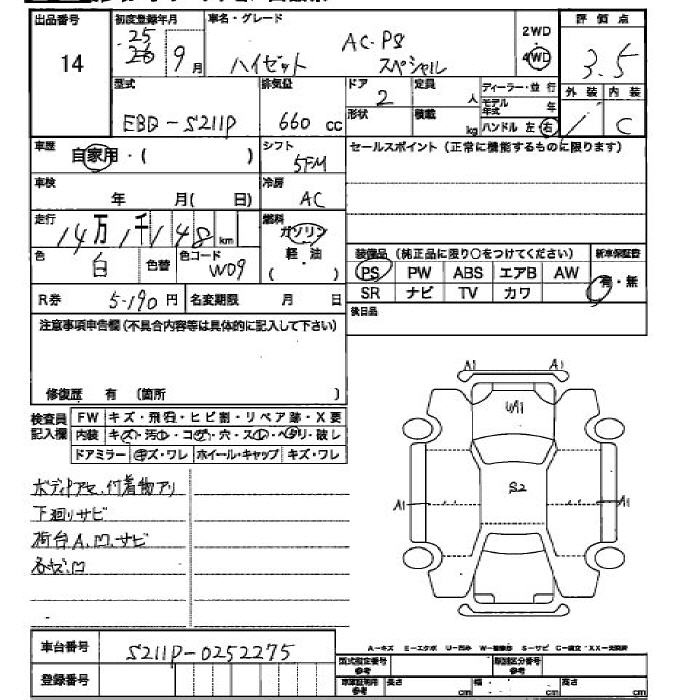 出品番号 初度登録年月 車名・グレード 評価点
14 25 26 9月 ハイゼット AC・PS スペシャル 2WD 4WD 3.5
型式 排気量 ドア 定員 ディーラー・並行 外装 内装
EBD-S211P 660 cc 2 人 モデル年式 年 C
形状 積載 kg ハンドル 左・右
車歴 自家用・( ) シフト 5FM セールスポイント(正常に機能するものに限ります)
車検 年 月( 日) 冷房 AC
走行 14万1千148km 燃料 ガソリン
色 白 色替 色コード W09 軽・油 ( )
装備品(純正品に限り○をつけてください) 新車保証書
PS PW ABS エアB AW 有・無
SR ナビ TV カワ
R券 5,190円 名変期限 月 日
後日品
注意事項申告欄(不具合内容等は具体的に記入して下さい)
修復歴 有 (箇所 )
検査員記入欄 FW キズ・飛石・ヒビ割・リペア跡・X要
内装 キズ・汚れ・コゲ・穴・スレ・ヘタリ・破レ
ドアミラー キズ・ワレ ホイール・キャップ キズ・ワレ
A1 A1
S2
A1 A1
下廻リサビ
荷台A.U.サビ
車台番号 S211P-0252275
登録番号
A-キズ E-エクボ U-凹み S-サビ
型式指定番号 参考 類別区分番号 参考
長さ cm 幅 cm 高さ cm